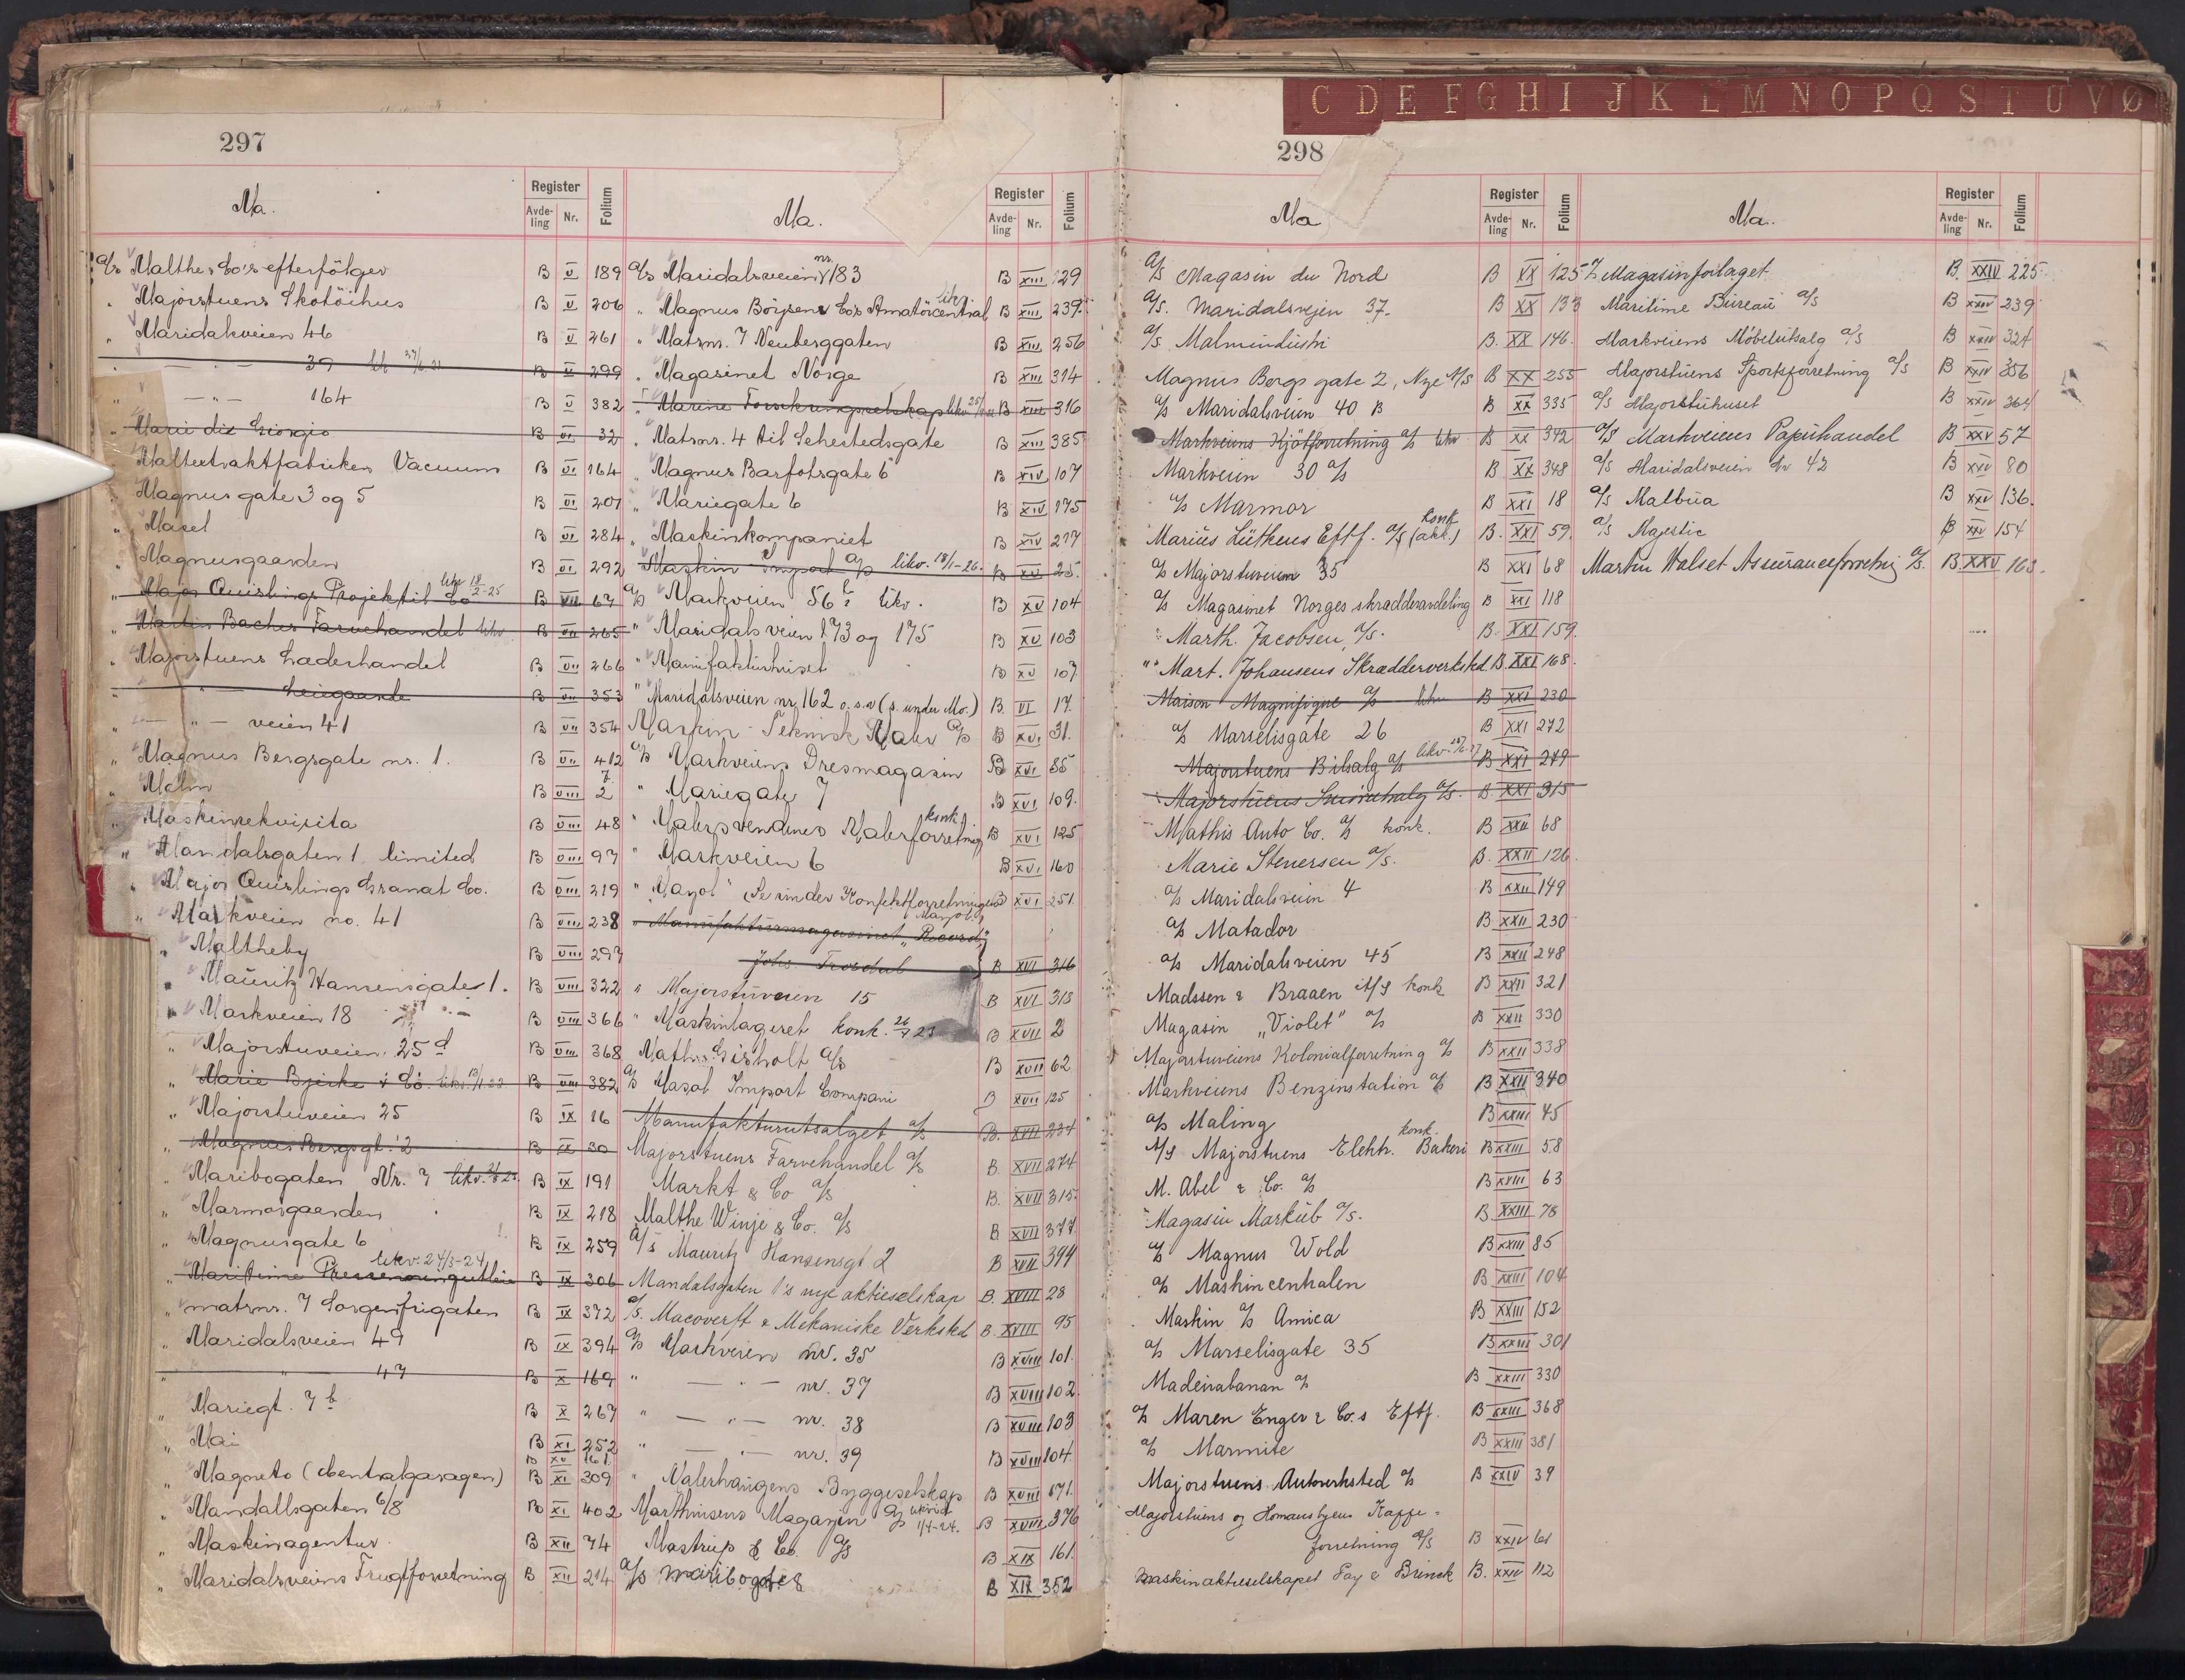 C D E F G H I J K L M N O P Q S T U V Ø
297
Ma.
Register
Avde-
ling
Nr.
Folium
A/s Malthe & Co's efterfölger B V 189
" Majorstuens Skotöihus B V 206
" Maridalsveien 46 B V 261
— " — 39 B V 299
" — " — 164 B V 382
" Marie di Giorgio B VI 32
" Maltextraktfabriken Vacuum B VI 164
" Magnus gate 3 og 5 B VI 207
" Masel B VI 284
" Magnusgaarden B VI 292
" Major Quislings Projektil Co likv 18/2-25 B VII 67
" Martin Baches Farvehandel likv B VII 265
" Majorstuens Laderhandel B VII 266
" — " — Leiegaarde B VII 353
" — " — veien 41 B VII 354
" Magnus Bergsgate nr. 1. B VII 412
" Malm B VIII 2
" Maskinrekvisita B VIII 48
" Mandalsgaten 1 limited B VIII 97
" Major Quislings Granat Co. B VIII 219
" Markveien no. 41 B VIII 238
" Maltheby B VIII 297
" Mauritz Hansensgate 1. B VIII 322
" Markveien 18 B VIII 366
" Majorstuveien 25 d B VIII 368
" Marie Bjerke & Co. likv. B VIII 382
" Majorstuveien 25 B IX 16
" Magnus Bergsgt. 2 B IX 30
" Maribogaten Nr. 7 likv. B IX 191
" Marmorgaarden B IX 218
" Magnusgate 6 B IX 259
" Maritime likv. 24/3-24 B IX 306
" matrnr. 7 Sorgenfrigaten B IX 372
" Maridalsveien 49 B IX 394
" — " — 47 B X 169
" Mariegt. 7 b B X 267
" Mai B XI 252
B XV 161
" Magneto (Centralgaragen) B XI 309
" Mandallsgaten 6/8 B XI 402
" Maskinagentur B XII 74
" Maridalsveiens Frugtforretning B XII 214
Ma.
Register
Avde-
ling
Nr.
Folium
A/s Maridalsveien nr. 183 B XIII 129
" Magnus Böysen & Co's Amatörcentral likv B XIII 239
" Matrnr. 7 Neuberggaten B XIII 256
" Magasinet Norge B XIII 314
" Marine Forsikringsselskap likv B XIII 316
" Matrnr. 4 til Sehestedsgate B XIII 385
" Magnus Barfotsgate 6 B XIV 107
" Mariegate 6 B XIV 175
" Maskinkompaniet B XIV 217
Maskin Import A/s likv. 18/1-26. B XV 25
A/s Markveien 56 likv. B XV 104
" Maridalsveien 173 og 175 B XV 103
" Manufakturhuset B XV 107
" Maridalsveien nr. 162 o.s.v (s. under Mo.) B VI 17
Maskin-Teknisk A/s B XVI 31.
A/s Markveiens Dresmagasin B XVI 85
" Mariegate 7 B XVI 109.
" Malersvendenes Malerforretning konk. B XVI 125
" Markveien 6 B XVI 160
" "Mayol" Konfektforretninger B XVI 251
" Manufakturmagasinet "Record"
Johs Trosdal B XVI 316
" Majorstuveien 15 B XVI 313
" Maskinlageret konk. B XVII 2
Maths. Gisholt A/s B XVII 62
A/s Masal Import Compani B XVII 125
Manufakturutsalget A/s B. XVII 234
Majorstuens Farvehandel A/s B. XVII 274
Markt & Co A/s B. XVII 315
Malthe Winje & Co. A/s B XVII 377
A/s Mauritz Hansensgt 2 B XVII 394
Mandalsgaten 1's nye aktieselskap B. XVIII 28
A/s. Macoverft & Mekaniske Verksted B. XVIII 95
A/s Markveien nr. 35 B XVIII 101
" — " — nr. 37 B XVIII 102
" — " — nr. 38 B XVIII 103
" — " — nr. 39 B XVIII 104
" Malerhaugens Byggeselskap B XVIII 171
Marthinsens Magasin A/s likvid. 1/4-24. B XVIII 376
Mastrup & Co. A/s B XIX 161
A/s Maribogate 8 B XIX 352
298
Ma
Register
Avde-
ling
Nr.
Folium
A/s Magasin du Nord B XX 125
A/s. Maridalsvejen 37. B XX 133
A/s. Malmindustri B. XX 146.
Magnus Bergs gate 2, Nye A/S B XX 255
A/s Maridalsveien 40 B B XX 335
Markveiens Kjötforretning A/s likv B XX 342
Markveien 30 A/s B XX 348
A/s Marmor B XXI 18
Marius Lütkens Eftf. A/s (akk.) konk B. XXI 59.
A/s Majorstuveien 35 B XXI 68
A/s Magasinet Norges skrædderavdeling B XXI 118
Marth. Jacobsen, A/s. B. XXI 159.
" Mart. Johansens Skrædderverksted B. XXI 168.
Maison Magnifique A/s likv B XXI 230
A/s Marselisgate 26 B XXI 272
Majorstuens Bilsalg A/s likv. B XXI 279
Majorstuens A/s. B. XXI 315
Mathis Auto Co. A/s konk. B XXII 68
Marie Stenersen A/s. B. XXII 126.
A/s Maridalsveien 4 B XXII 149
A/s Matador B XXII 230
A/s Maridalsveien 45 B XXII 248
Madssen & Braaen A/S konk B XXII 321
Magasin "Violet" A/s B XXII 330
Majorstuveiens Kolonialforretning A/s B XXII 338
Markveiens Benzinstation A/s B XXII 340
A/s Maling B XXIII 45
A/S Majorstuens Elektr. Bakeri konk. B XXIII 58
M. Abel & Co. A/s B XXIII 63
Magasin Markiib A/s. B. XXIII 78
A/s Magnus Wold B XXIII 85
A/s Maskincentralen B XXIII 104
Maskin A/s Amica B XXIII 152
A/s Marselisgate 35 B XXIII 301
Madeirabanan A/s B XXIII 330
A/s Maren Enger & Co.s Eftf. B XXIII 368
A/s Marmite B XXIII 381
Majorstuens Autoverksted A/s B XXIV 39
Majorstuens og Homansbyens Kaffe-
forretning A/s B XXIV 61
Maskinaktieselskapet Fay & Brinck B. XXIV 112
Ma.
Register
Avde-
ling
Nr.
Folium
A/s Magasinforlaget B. XXIV 225
Maritime Bureau A/s B XXIV 239
Markveiens Møbelutsalg A/s B XXIV 324
Majorstuens Sportsforretning A/s B XXIV 356
A/s Majorstuhuset B XXIV 364
A/S Markveiens Papirhandel B XXV 57
A/s Maridalsveien 42 B XXV 80
A/s Malbua B XXV 136.
A/s Majestic B XXV 154
Martin Halset Assuranceforretning A/s. B XXV 163.